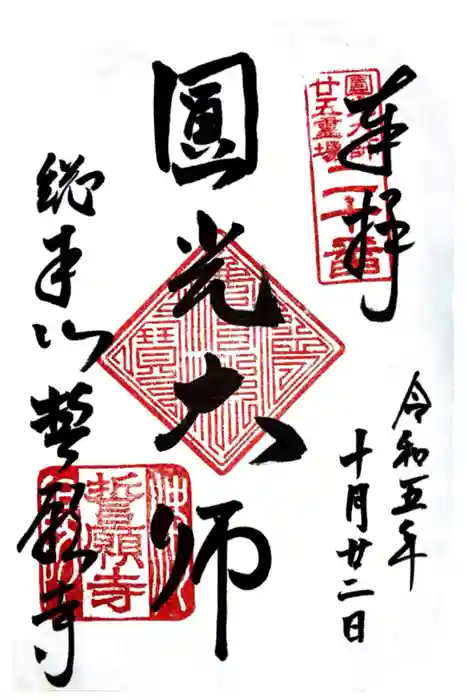 奉拝
圓光大師
廿五霊場
二十番
令和五年
十月廿二日
圓光大師
総本山誓願寺
誓願寺